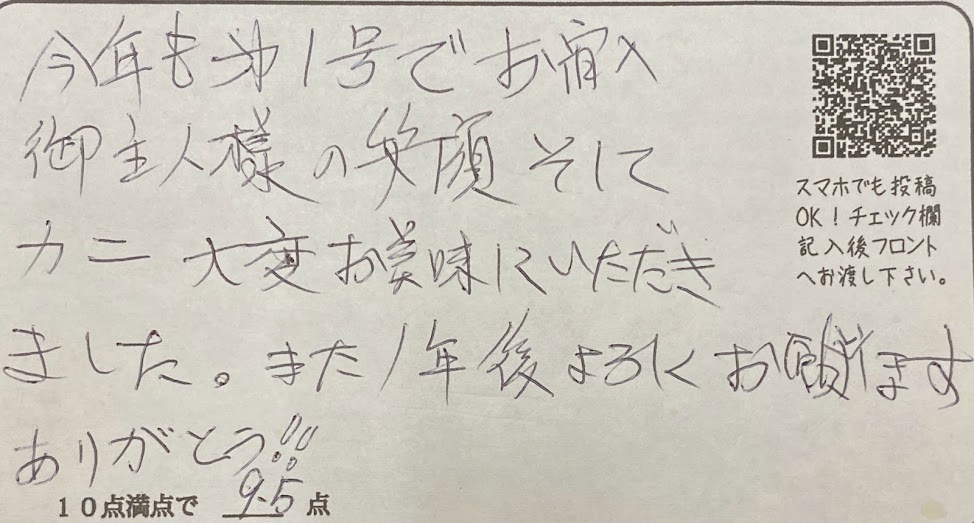 今年も第1号でお宿へ
御主人様の笑顔そして
カニ 大変お美味にいただき
ました。また1年後よろしくお願います
ありがとう!!
10点満点で 9.5 点
スマホでも投稿
OK!チェック欄
記入後フロント
へお渡し下さい。